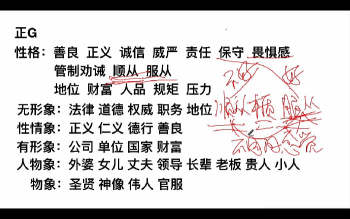 正G
性格：善良 正义 诚信 威严 责任 保守 畏惧感
管制劝诫 顺从 服从
地位 财富 人品 规矩 压力
无形象：法律 道德 权威 职务 地位
性情象：正义 仁义 德行 善良
有形象：公司 单位 国家 财富
人物象：外婆 女儿 丈夫 领导 长辈 老板 贵人 小人
物象：圣贤 神像 伟人 官服
服从